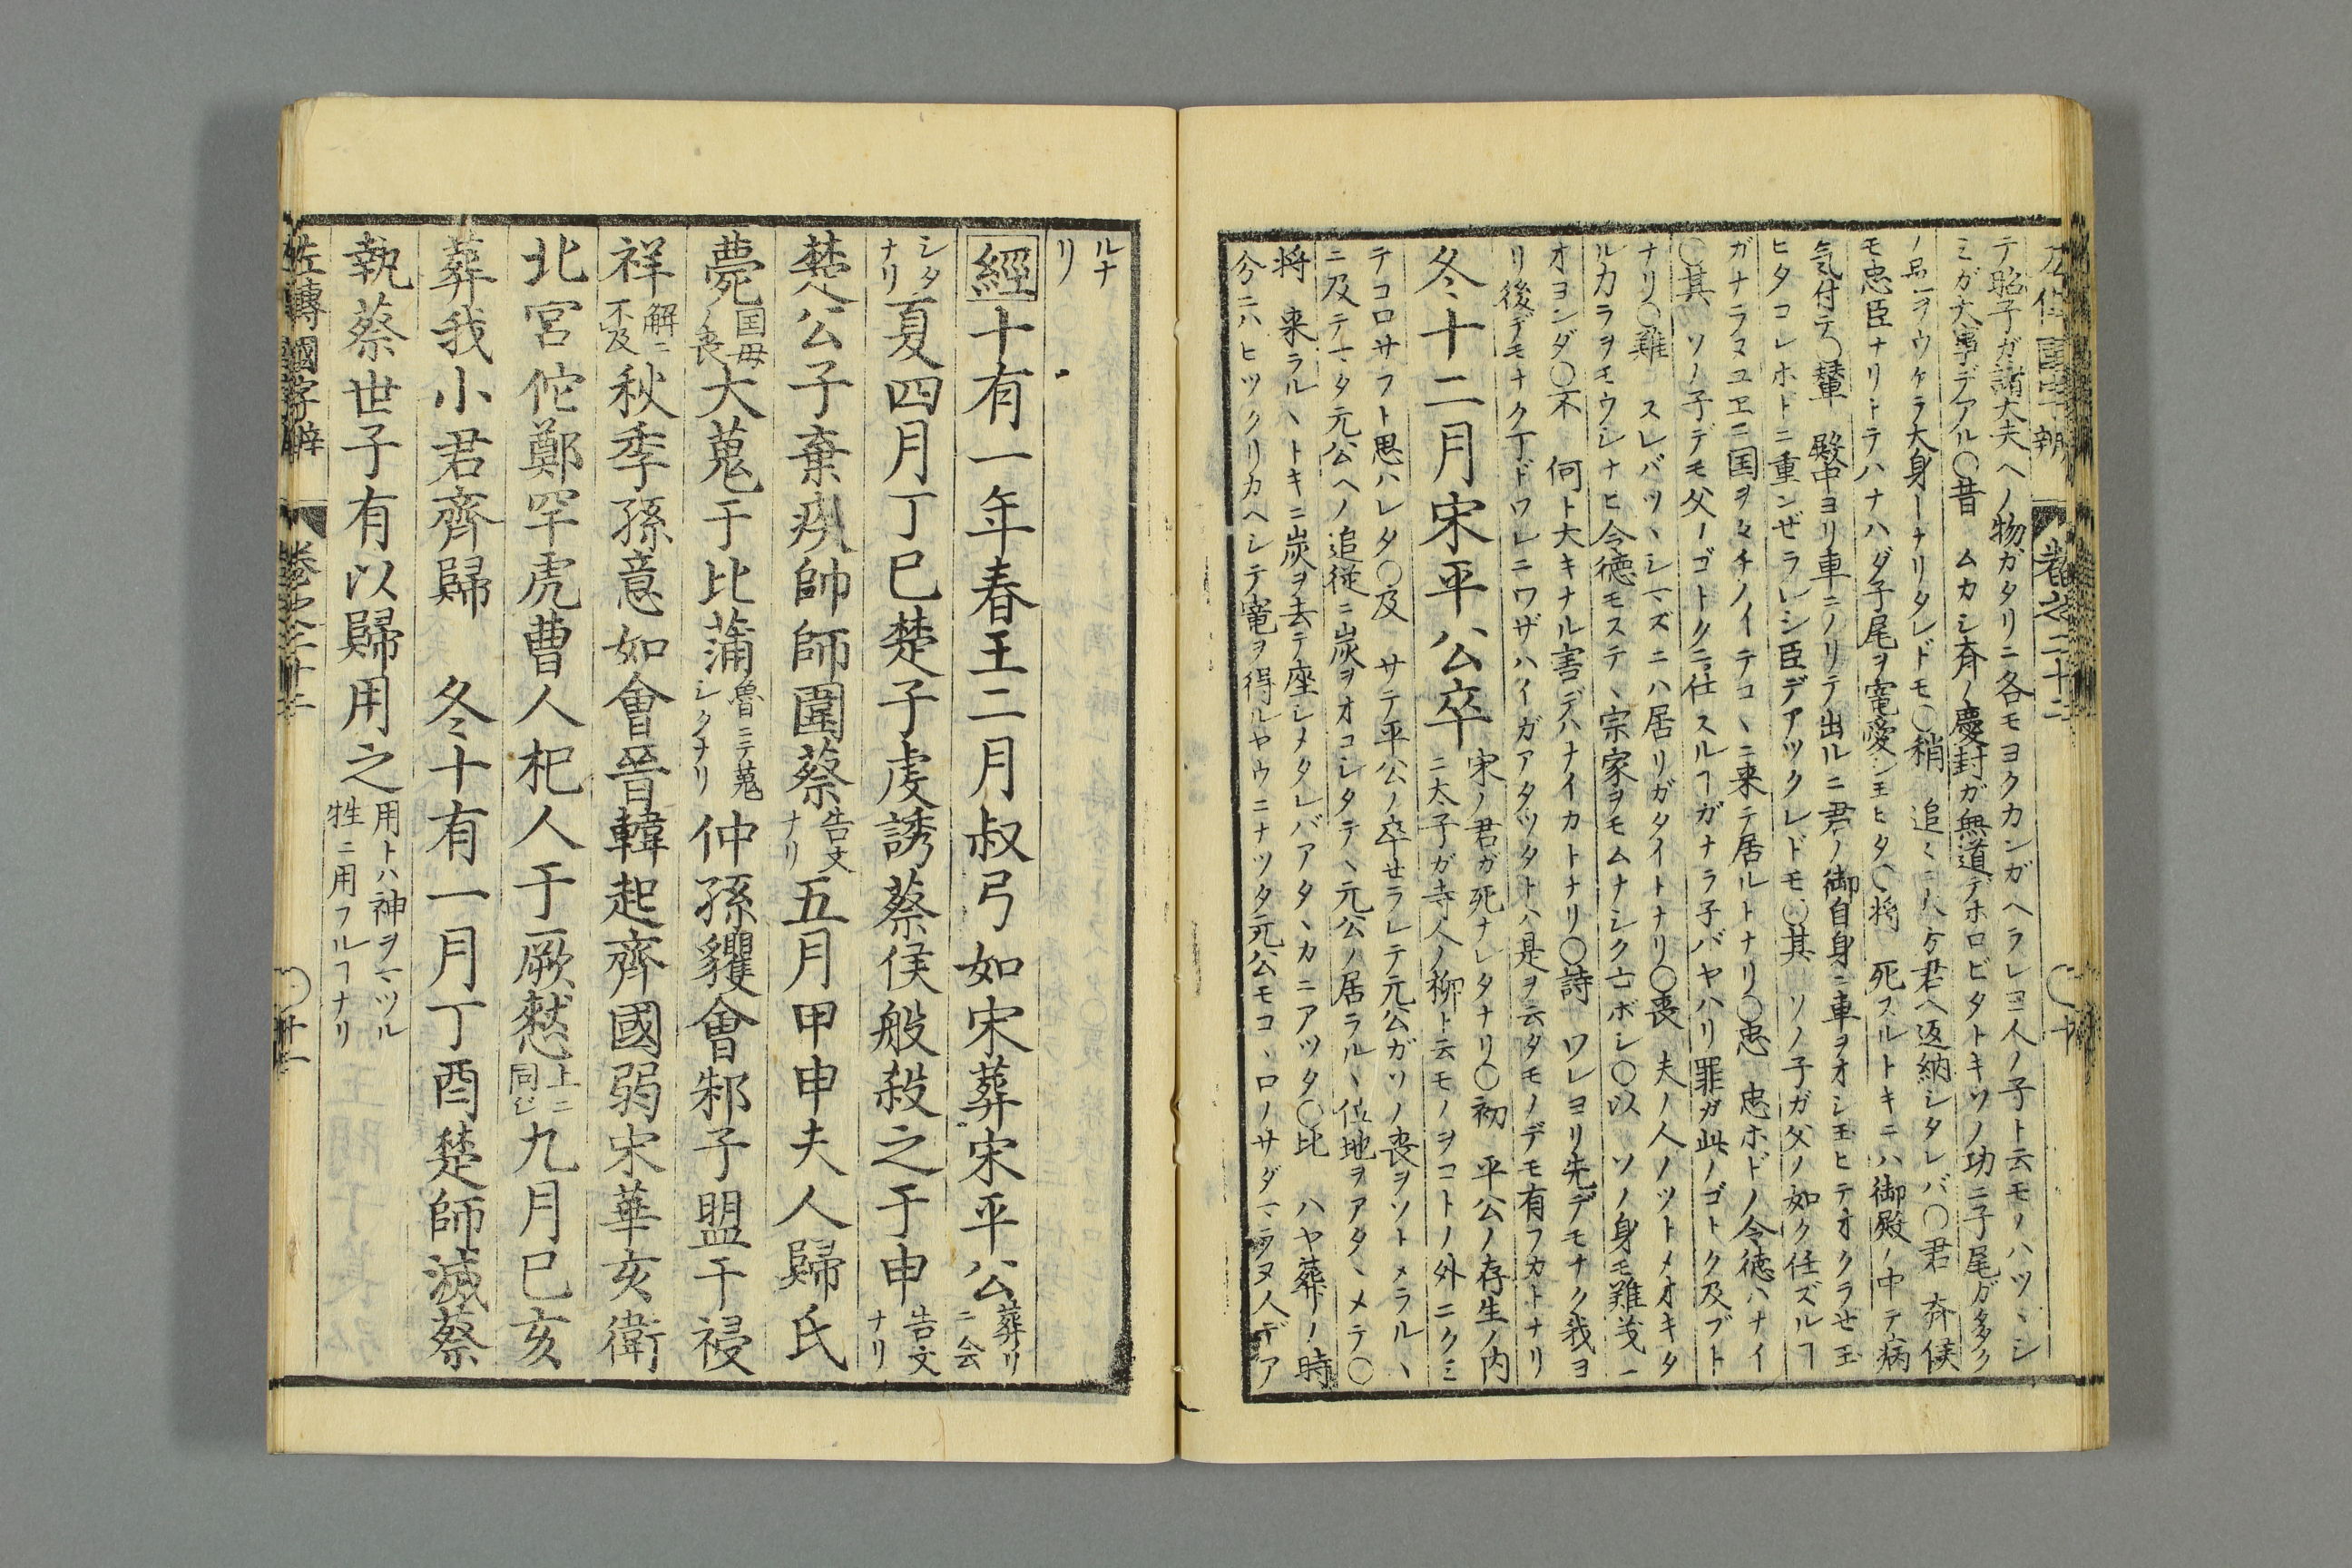 左傳國字辯 卷之二十二 〇十
テ昭子ガ諸大夫ヘノ物ガタリニ各モヨクカンガヘラレヨ人ノ子ト云モノハツヽシ
ミガ大事デアル〇昔 ムカシ斉ノ慶封ガ無道テホロビタトキソノ功ニ子尾ガ多ク
ノ邑ヲウケラ大身ーナリタレドモ〇稍 追〻ニハ方君ヘ返納シタレバ〇君 斉侯
モ忠臣ナリトテハナハダ子尾ヲ寵愛シ玉ヒタ〇将 死スルトキニハ御殿ノ中テ病
気付テ〇輦 殿中ヨリ車ニノリテ出ルニ君ノ御自身ニ車ヲオシ玉ヒテオクラせ玉
ヒタコレホトニ重ンぜラレシ臣デアツクレドモ〇其 ソノ子ガ父ノ如ク任ズルヿ
ガナラヌユヱニ国ヲ々チノイテコヽニ来テ居ルトナリ〇忠 忠ホドノ令徳ハナイ
〇其 ソノ子デモ父ノゴトクニ仕スルヿガナラ子バヤハリ罪ガ此ノゴトク及ブト
ナリ〇難 スレバツヽシマズニハ居リガタイトナリ〇喪 夫ノ人ノツトメオキタ
ル力ラヲモウシナヒ令徳モステヽ宗家ヲモムナシク亡ボシ〇以 ソノ身モ難茂ー
オヨンダ〇不 何ト大キナル害デハナイカトナリ〇詩 ワレヨリ先デモナク我ヨ
リ後デモナク丁ドワレニワザハイガアタツタトハ是ヲ云タモノデモ有フカトナリ
冬十二月宋平公卒 宋ノ君ガ死ナレタナリ〇初 平公ノ存生ノ内
ニ太子ガ寺人ノ柳ト云モノヲコトノ外ニクミ
テコロサフト思ハレタ〇及 サテ平公ノ卒せラレテ元公ガソノ喪ヲソトメラルヽ
ニ及テマタ元公ヘノ追従ニ炭ヲオコシタテヽ元公ノ居ラルヽ位地ヲアタヽメテ〇
将 来ラルヽトキニ炭ヲ去テ座シメタレバアタヽカニアツタ〇比 ハヤ葬ノ時
分ニハヒツクリカヘシテ寵ヲ得ルヤウニナツタ元公モコヽロノサダマラヌ人デア
ルナ
リ
經十有一年春王二月叔弓如宋葬宋平公 葬リ
ニ会
シタ
ナリ 夏四月丁巳楚子虔誘蔡侯般殺之于申 告文
ナリ
楚公子棄疾帥師圍蔡 告文
ナリ 五月甲申夫人歸氏
薨 国母
ノ喪 大蒐于比蒲 魯ニテ蒐
シタナリ 仲孫貜會邾子盟于祲
祥 解ニ
不及 秋季孫意如會晉韓起齊國弱宋華亥衛
北宮佗鄭罕虎曹人杞人于厥憖 上ニ
同じ 九月己亥
葬我小君齊歸 冬十有一月丁酉楚師滅蔡
執蔡世子有以歸用之 用トハ神ヲマツル
牲ニ用フルヿナリ
左傳國字辯 卷之二十二 〇廿一